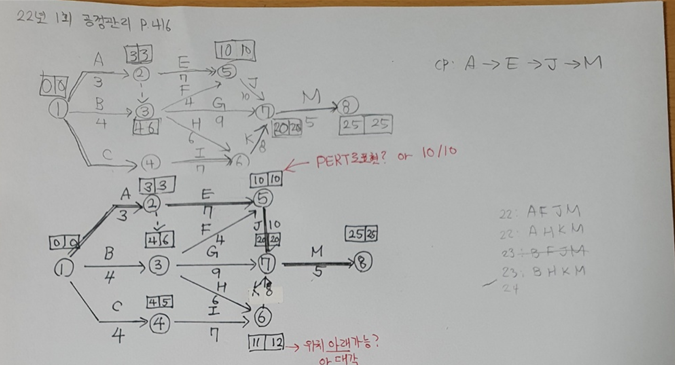 22년 1회 공정관리 P.416
CP: A → E → J → M
0 0
3 3
10 10
A
3
E
7
F
4
J
10
B
4
G
9
H
6
M
5
4 6
20 20
25 25
C
I
7
K
8
① ② ③ ④ ⑤ ⑥ ⑦ ⑧
PERT로 표현? or 10/10
0 0
3 3
10 10
A
3
E
7
F
4
J 10
4 6
20 20
25 25
B
4
G
9
M
5
H
6
K 8
C
4
4 5
I
7
① ② ③ ④ ⑤ ⑥ ⑦ ⑧
11 12 → 위치 아래가능?
or 대각
22: A F J M
22: A H K M
23: B F J M
23: B H K M
24